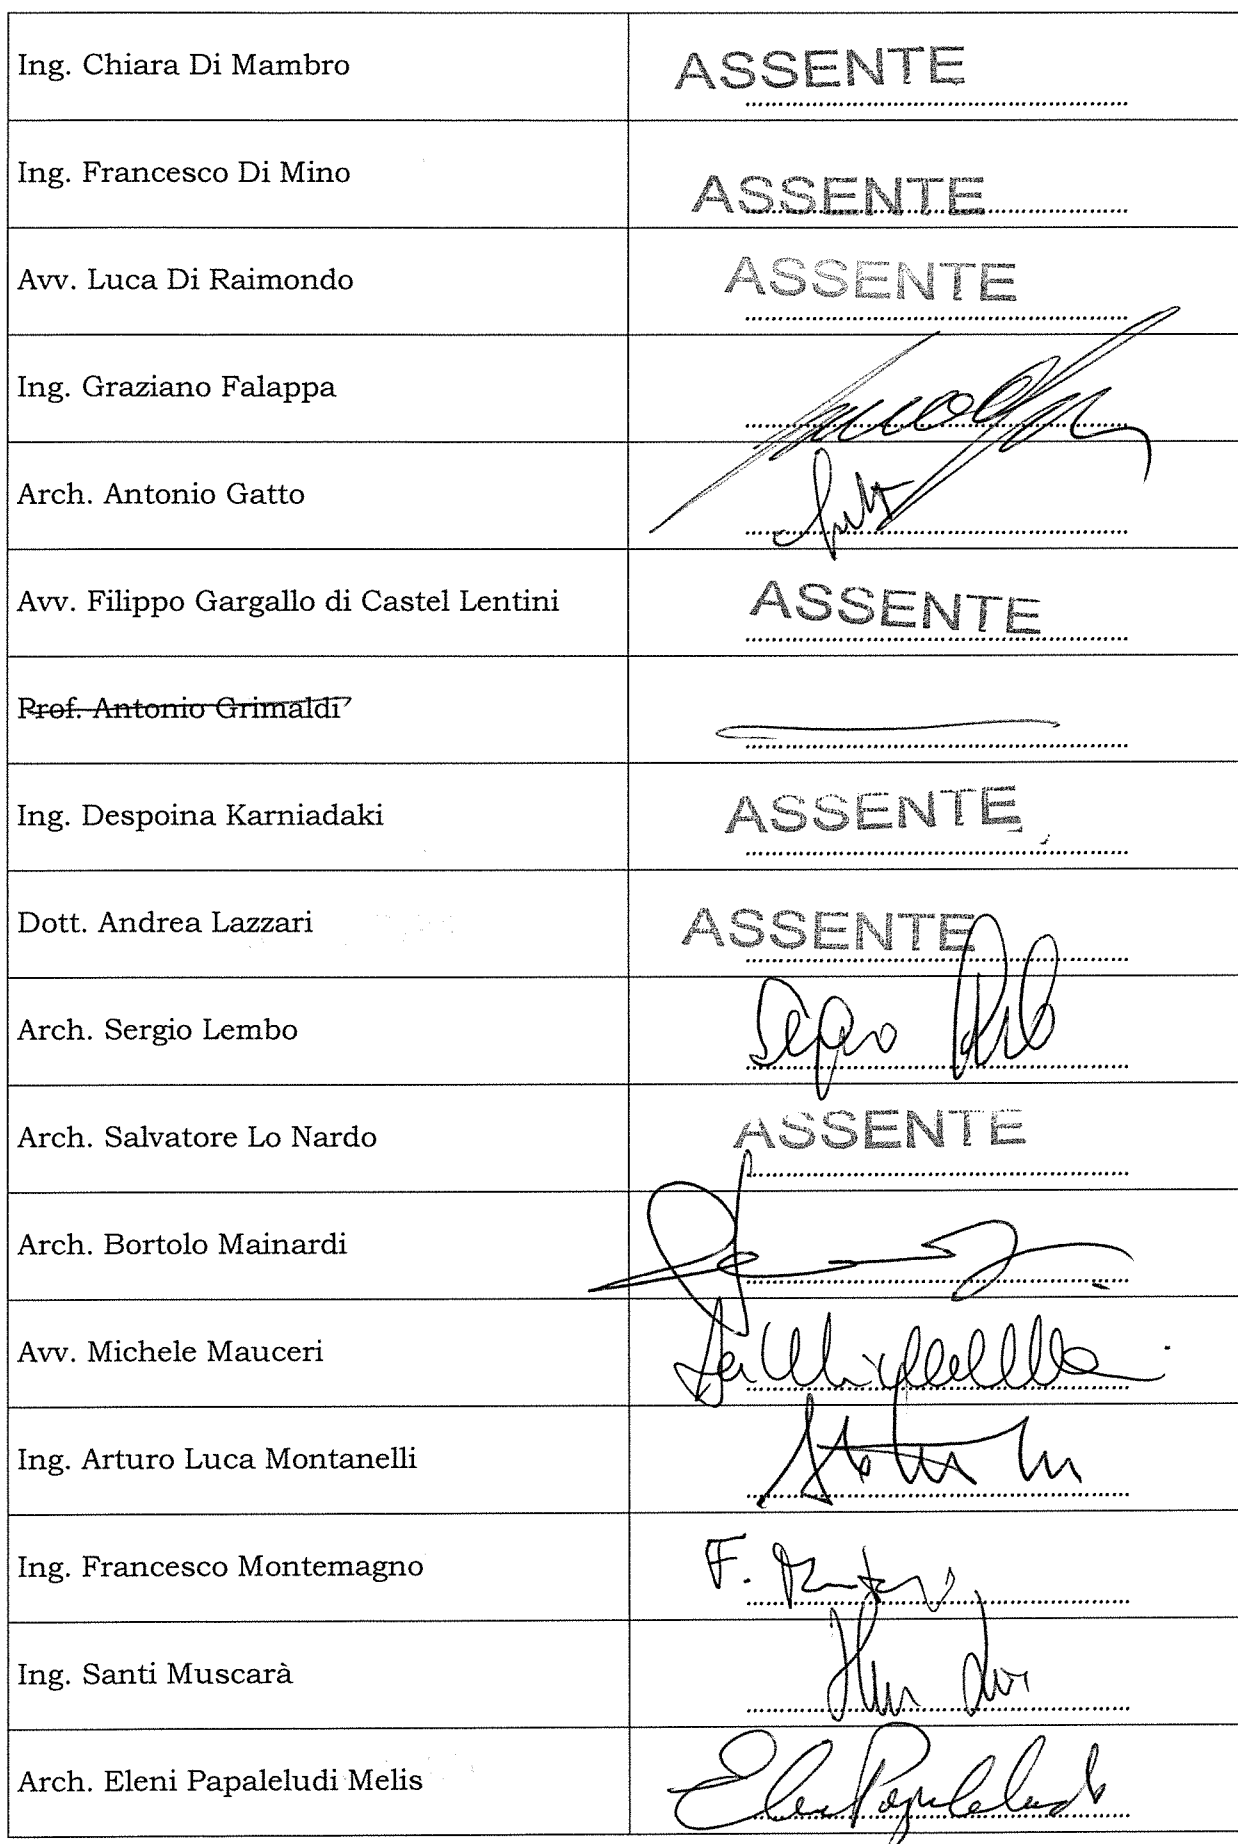 Ing. Chiara Di Mambro ASSENTE
Ing. Francesco Di Mino ASSENTE
Avv. Luca Di Raimondo ASSENTE
Ing. Graziano Falappa
Arch. Antonio Gatto
Avv. Filippo Gargallo di Castel Lentini ASSENTE
Prof. Antonio Grimaldi
Ing. Despoina Karniadaki ASSENTE
Dott. Andrea Lazzari ASSENTE
Arch. Sergio Lembo
Arch. Salvatore Lo Nardo ASSENTE
Arch. Bortolo Mainardi
Avv. Michele Mauceri
Ing. Arturo Luca Montanelli
Ing. Francesco Montemagno
Ing. Santi Muscarà
Arch. Eleni Papaleludi Melis